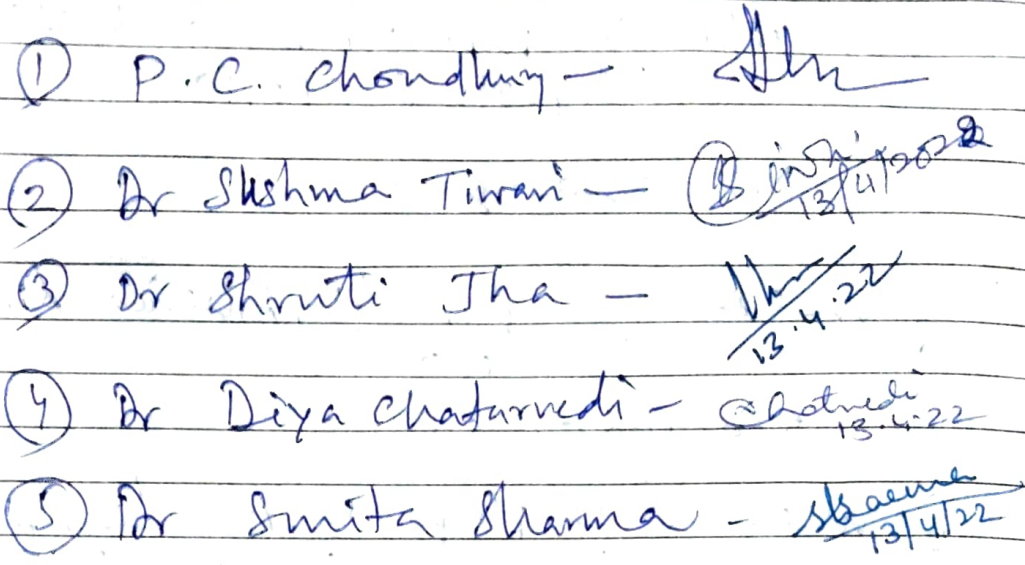 ① P. C. Choudhury —
② Dr Sushma Tiwari — 13/4/2022
③ Dr Shruti Jha — 13.4.22
④ Dr Diya Chaturvedi - 13.4.22
⑤ Dr Smita Sharma - 13/4/22